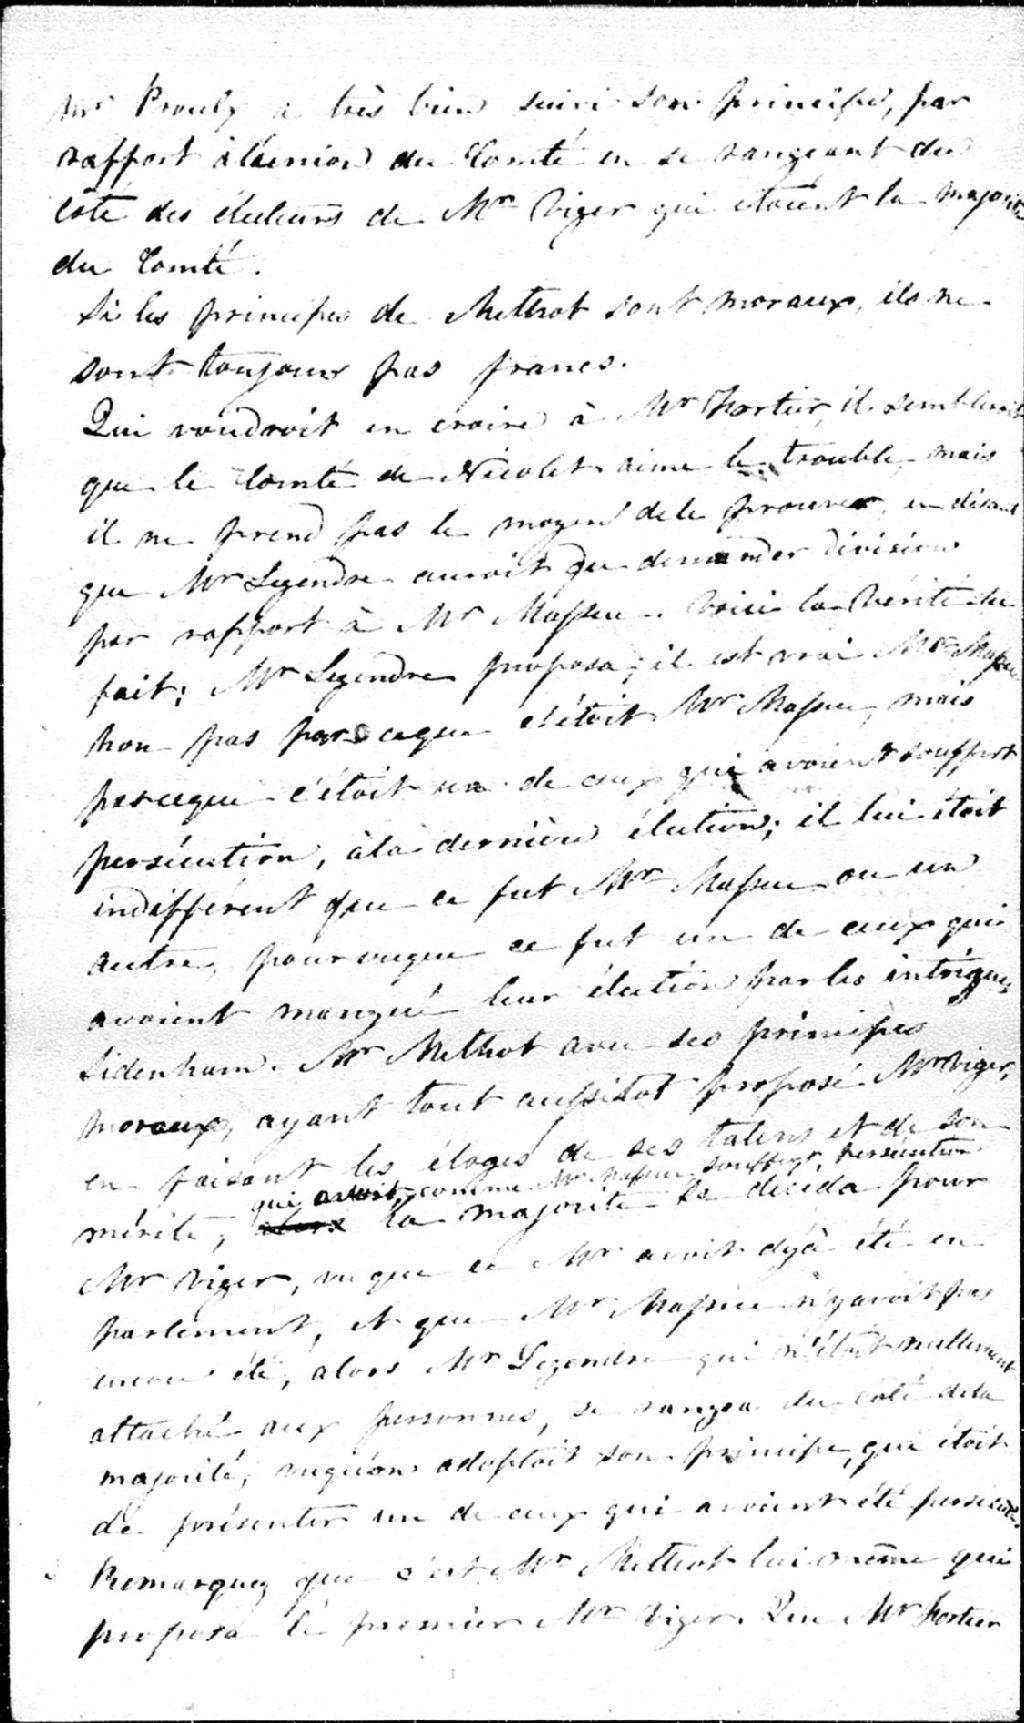 Mr Proulx a très bien suivi son principe, par
rapport à l'union du Comté en se rangeant du
côté des électeurs de Mr Viger qui étoient la majorité
du Comté.
Si les principes de Methot sont moraux, ils ne
sont toujours pas francs.
Qui voudroit en croire à Mr Fortier, il sembleroit
que le Comté de Nicolet aime le trouble, mais
il ne prend pas le moyen de le prouver, en disant
que Mr Legendre auroit pu demander division
par rapport à Mr Massue. Voici la vérité du
fait; Mr Legendre proposa, il est vrai Mr Massue
non pas parceque c'étoit Mr Massue, mais
parceque c'étoit un de ceux qui avoient souffert
persécution, à la dernière élection; il lui étoit
indifférent que ce fut Mr Massue ou un
autre, pourvuque ce fut un de ceux qui
avoient manqué leur élection par les intrigues
Sidenham. Mr Methot avec ses principes
moraux, ayant tout aussitot proposé Mr Viger,
en faisant les éloges de ses talens et de son
qui avoit, comme Mr Massue souffert, persécution
mérite, la majorité se décida pour
Mr Viger, vuque ce Mr avoit déjà été en
parlement, et que Mr Massue n'y avoit pas
encore été, alors Mr Legendre qui n'étoit nullement
attaché aux personnes, se rangea du coté de la
majorité, vuqu'on adoptoit son principe, qui étoit
de présenter un de ceux qui avoient été persécutés.
Remarquez que c'est Mr Methot lui même qui
proposa le premier Mr Viger. Que Mr Fortier